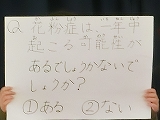 Q2 花粉症は、一年中
起こる可能性が
あるでしょうかないで
しょうか?
①ある ②ない